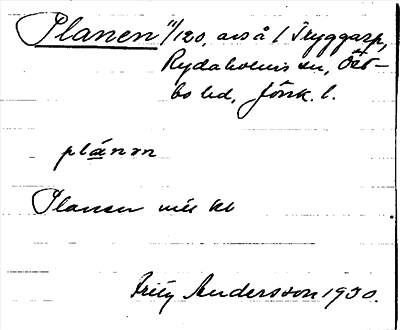 Planen 11/120, avs å 1 Tryggarp,
Rydaholms sn, Öst-
bo hd, Jönk. l.
plánən
Planen
Fritz Andersson 1930.